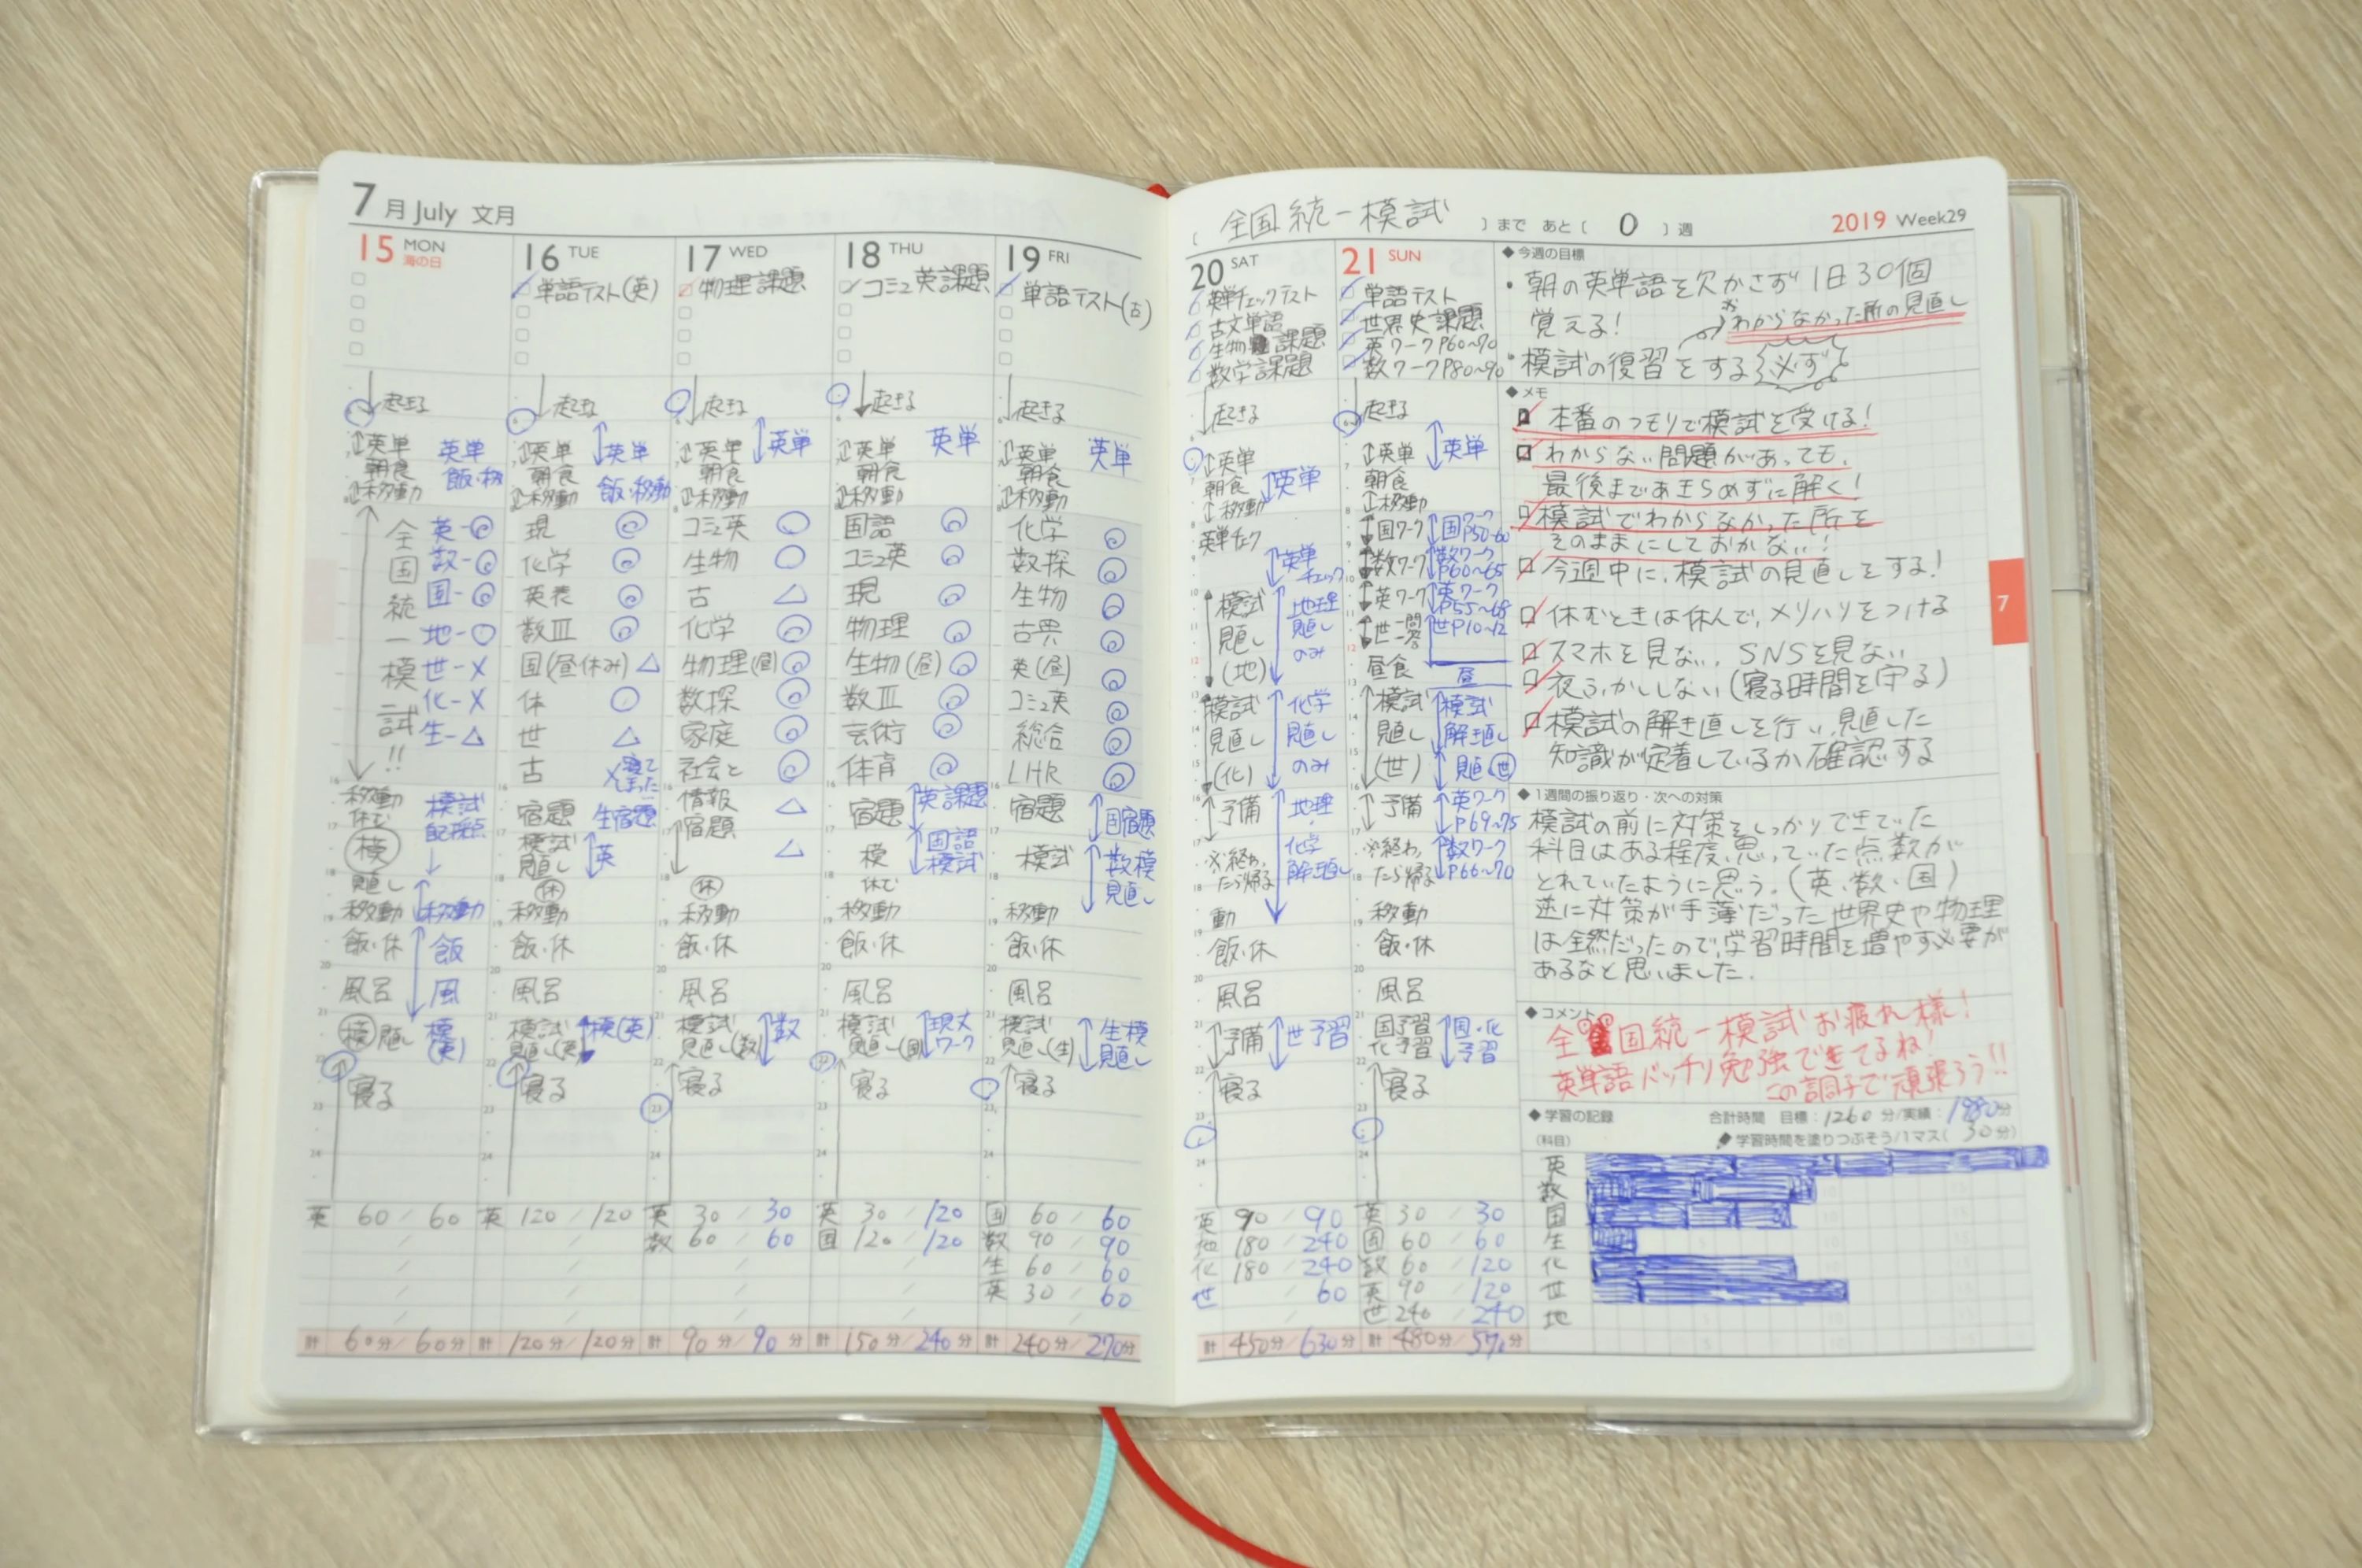 7月 July 文月
15 MON
海の日
起きる
英単
朝食
移動
英単
飯・移
全国統一模試!!
英-◎
数-◎
国-◎
地-○
世-×
化-×
生-△
移動
休む
模
見直し
移動
模試
移動
飯・休
飯
風呂
風
模見直し
模(英)
寝る
英 60/60
計 60分/60分
16 TUE
単語テスト(英)
起きる
英単
朝食
移動
英単
飯・移動
現 ◎
化学 ◎
英表 ◎
数Ⅲ ◎
国(昼休み) △
休 ○
世 △
古 × 寝てしまった
宿題
生宿題
模試
見直し
英
休
移動
飯・休
風呂
模試
見直し(英)
模(英)
寝る
英 120/120
計 120分/120分
17 WED
物理課題
起きる
英単
朝食
移動
英単
コミュ英 ○
生物 ○
古 △
化学 ◎
物理(昼) ◎
数探 ◎
家庭 ◎
社会と ◎
情報 △
宿題 △
休
移動
飯・休
風呂
模試
見直し(数)
数
寝る
英 30/30
数 60/60
計 90分/90分
18 THU
コミュ英課題
起きる
英単
朝食
移動
英単
国語 ◎
コミュ英 ◎
現 ◎
物理 ◎
生物(昼) ◎
数Ⅲ ◎
芸術 ◎
体育 ◎
宿題
英課題
模
国語
模試
休む
移動
飯・休
風呂
模試
見直し(国)
現文
ワーク
寝る
英 30/120
国 120/120
計 150分/240分
19 FRI
単語テスト(古)
起きる
英単
朝食
移動
英単
化学 ◎
数探 ◎
生物 ◎
古典 ◎
英(昼) ◎
コミュ英 ◎
総合 ◎
LHR ◎
宿題
国宿題
模試
数模
見直し
移動
飯・休
風呂
模試
見直し(生)
生模
見直し
寝る
国 60/60
数 90/90
生 60/60
英 30/60
計 240分/270分
(全国統一模試)まで あと(0)週
2019 Week29
20 SAT
英単チェックテスト
古文単語
生物課題
数学課題
起きる
英単
朝食
移動
英単
英単チェク
英単
チェック
模試
見直し
(地)
地理
見直し
のみ
模試
見直し
(化)
化学
見直し
のみ
予備
地理・化学
解き直し
※終わったら帰る
動
飯・休
風呂
予備
世予習
寝る
英 90/90
地 180/240
化 180/240
世 60
計 450分/630分
21 SUN
単語テスト
世界史課題
英ワークP60~70
数ワークP80~90
起きる
英単
朝食
移動
英単
国ワーク
国ワーク
P50-60
数ワーク
数ワーク
P60~65
英ワーク
英ワーク
P55~68
世一問
世P10~12
昼食
昼
模試
見直し
(世)
模試
解き直し
見直し世
予備
英ワーク
P69~75
※終わったら帰る
数ワーク
P66~70
移動
飯・休
風呂
国予習
化予習
国・化
予習
寝る
英 30/30
国 60/60
数 60/120
英 90/120
世 240/240
計 480分/570分
◆今週の目標
・朝の英単語を欠かさず1日30個
覚える!
わからなかった所の見直し
・模試の復習をする 必ず
◆メモ
本番のつもりで模試を受ける!
わからない問題があっても、
最後まであきらめずに解く!
模試でわからなかった所を
そのままにしておかない!
今週中に、模試の見直しをする!
休むときは休んで、メリハリをつける
スマホを見ない、SNSを見ない
夜ふかししない(寝る時間を守る)
模試の解き直しを行い、見直した
知識が定着しているか確認する
◆1週間の振り返り・次への対策
模試の前に対策をしっかりできていた
科目はある程度、思っていた点数が
とれていたように思う。(英・数・国)
逆に対策が手薄だった世界史や物理
は全然だったので、学習時間を増やす必要が
あるなと思いました。
◆コメント
全国統一模試お疲れ様!
英単語バッチリ勉強できてるね!
この調子で頑張ろう!!
◆学習の記録 合計時間 目標:1260分/実績:1980分
(科目) 学習時間を塗りつぶそう/1マス(30分)
英
数
国
生
化
世
地
7